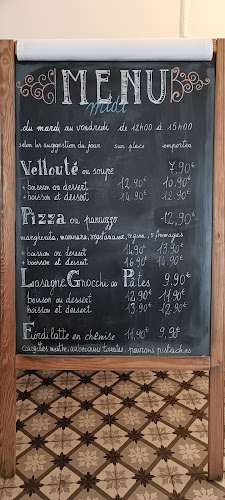 MENU
midi
du mardi au vendredi de 12h00 à 15h00
selon les suggestion du jour sur place emporter
Velouté ou soupe 7,90€
+ boisson ou dessert 12.90€ 10.90€
+ boisson et dessert 14.90€ 12.90€
Pizza ou panuozzo 12,90€
margherita, marinara, vegetariana, regina, 5 fromages
+ boisson ou dessert 14.90€ 13.90€
+ boisson et dessert 16.90€ 14.90€
Lasagne, Gnocchi ou Pâtes 9.90€
boisson ou dessert 12.90€ 11.90€
boisson et dessert 13.90€ 12.90€
Fiordilatte en chemise 11,90€ 9,90€
courgettes menthe, aubergines tomates, poivrons pistaches